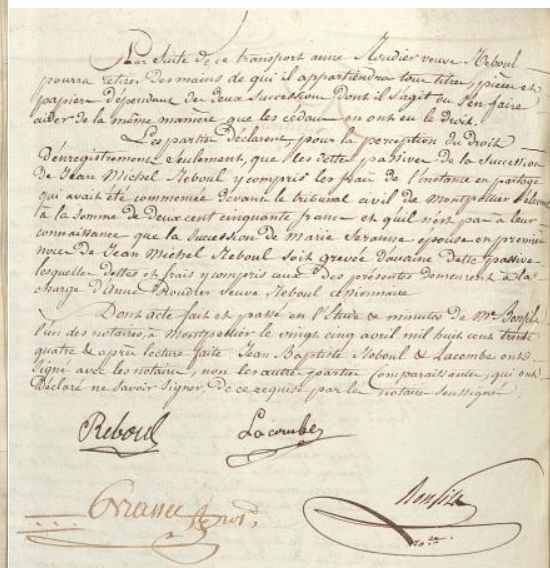 Par suite de ce transport anne Roudier veuve Reboul
pourra retirer des mains de qui il appartiendra tous titres, pièces et
papiers dépendant des deux succession dont il s'agit ou s'en faire
aider de la même manière que les cédans en ont eu le droit.
Les parties Déclarent, pour la perception du Droit
D'enrégistrement seulement, que les dettes passives de la succession
De Jean Michel Reboul y compris les frais de l'instance en partage
qui avait été commencée devant le tribunal civil de Montpellier
à la somme de deux cent cinquante francs et quil n'est pas à leur
connaissance que la succession de Marie épouse en premières
noces de Jean Michel Reboul soit grevée d'aucune dette passive
lesquelles dettes et frais y compris ceux des présentes demeurent à la
charge d'Anne Roudier veuve Reboul cessionnaire
Dont acte fait et passé en l'Etude & minutes de Me Bonfils
l'un des notaires, à Montpellier le vingt cinq avril mil huit cent trente
quatre & après lecture faite Jean Baptiste Reboul & Lacombe ont
signé avec les notaires, non les autres parties Comparaissantes, qui ont
Déclaré ne savoir signer, de ce requises par le notaire soussigné.
Reboul Lacombe
Bonfils
no.re